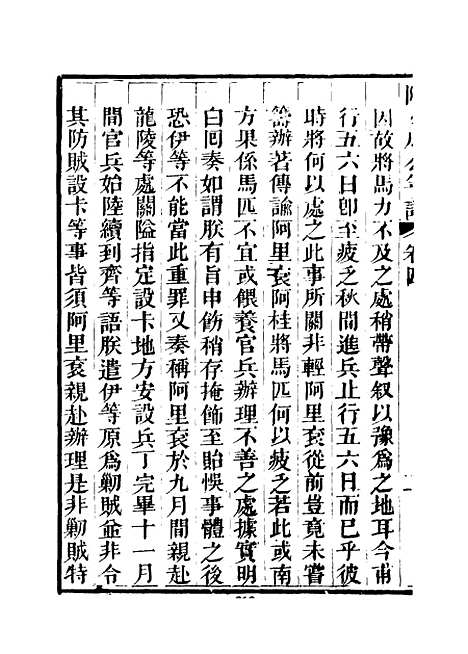 因故將馬力不及之處稍帶聲叙以豫為之地耳今甫
行五六日卽至疲乏秋間進兵止行五六日而已乎彼
時將何以處之此事所關非輕阿里袞從前豈竟未嘗
籌辦著傳諭阿里袞阿桂將馬匹何以疲乏若此或南
方果係馬匹不宜或餵養官兵辦理不善之處據實明
白囘奏如謂朕有旨申飭稍存掩飾至貽悞事體之後
恐伊等不能當此重罪又奏稱阿里袞於九月間親赴
龍陵等處關隘指定設卡地方安設兵丁完畢十一月
間官兵始陸續到齊等語朕遣伊等原為勦賊並非令
其防賊設卡等事皆須阿里袞親赴辦理是非勦賊特
卷四